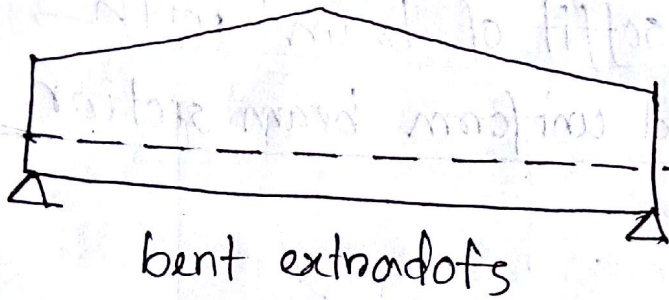 bent extradofs